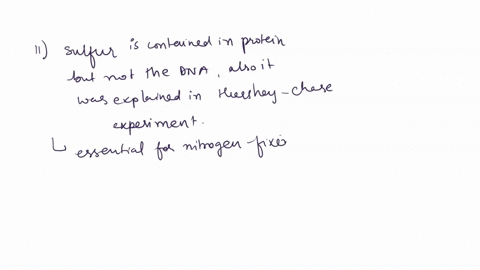 11) Sulfur is contained in protein
but not the DNA, also it
was explained in Hershey-chase
experiment.
↳ essential for nitrogen-fixi